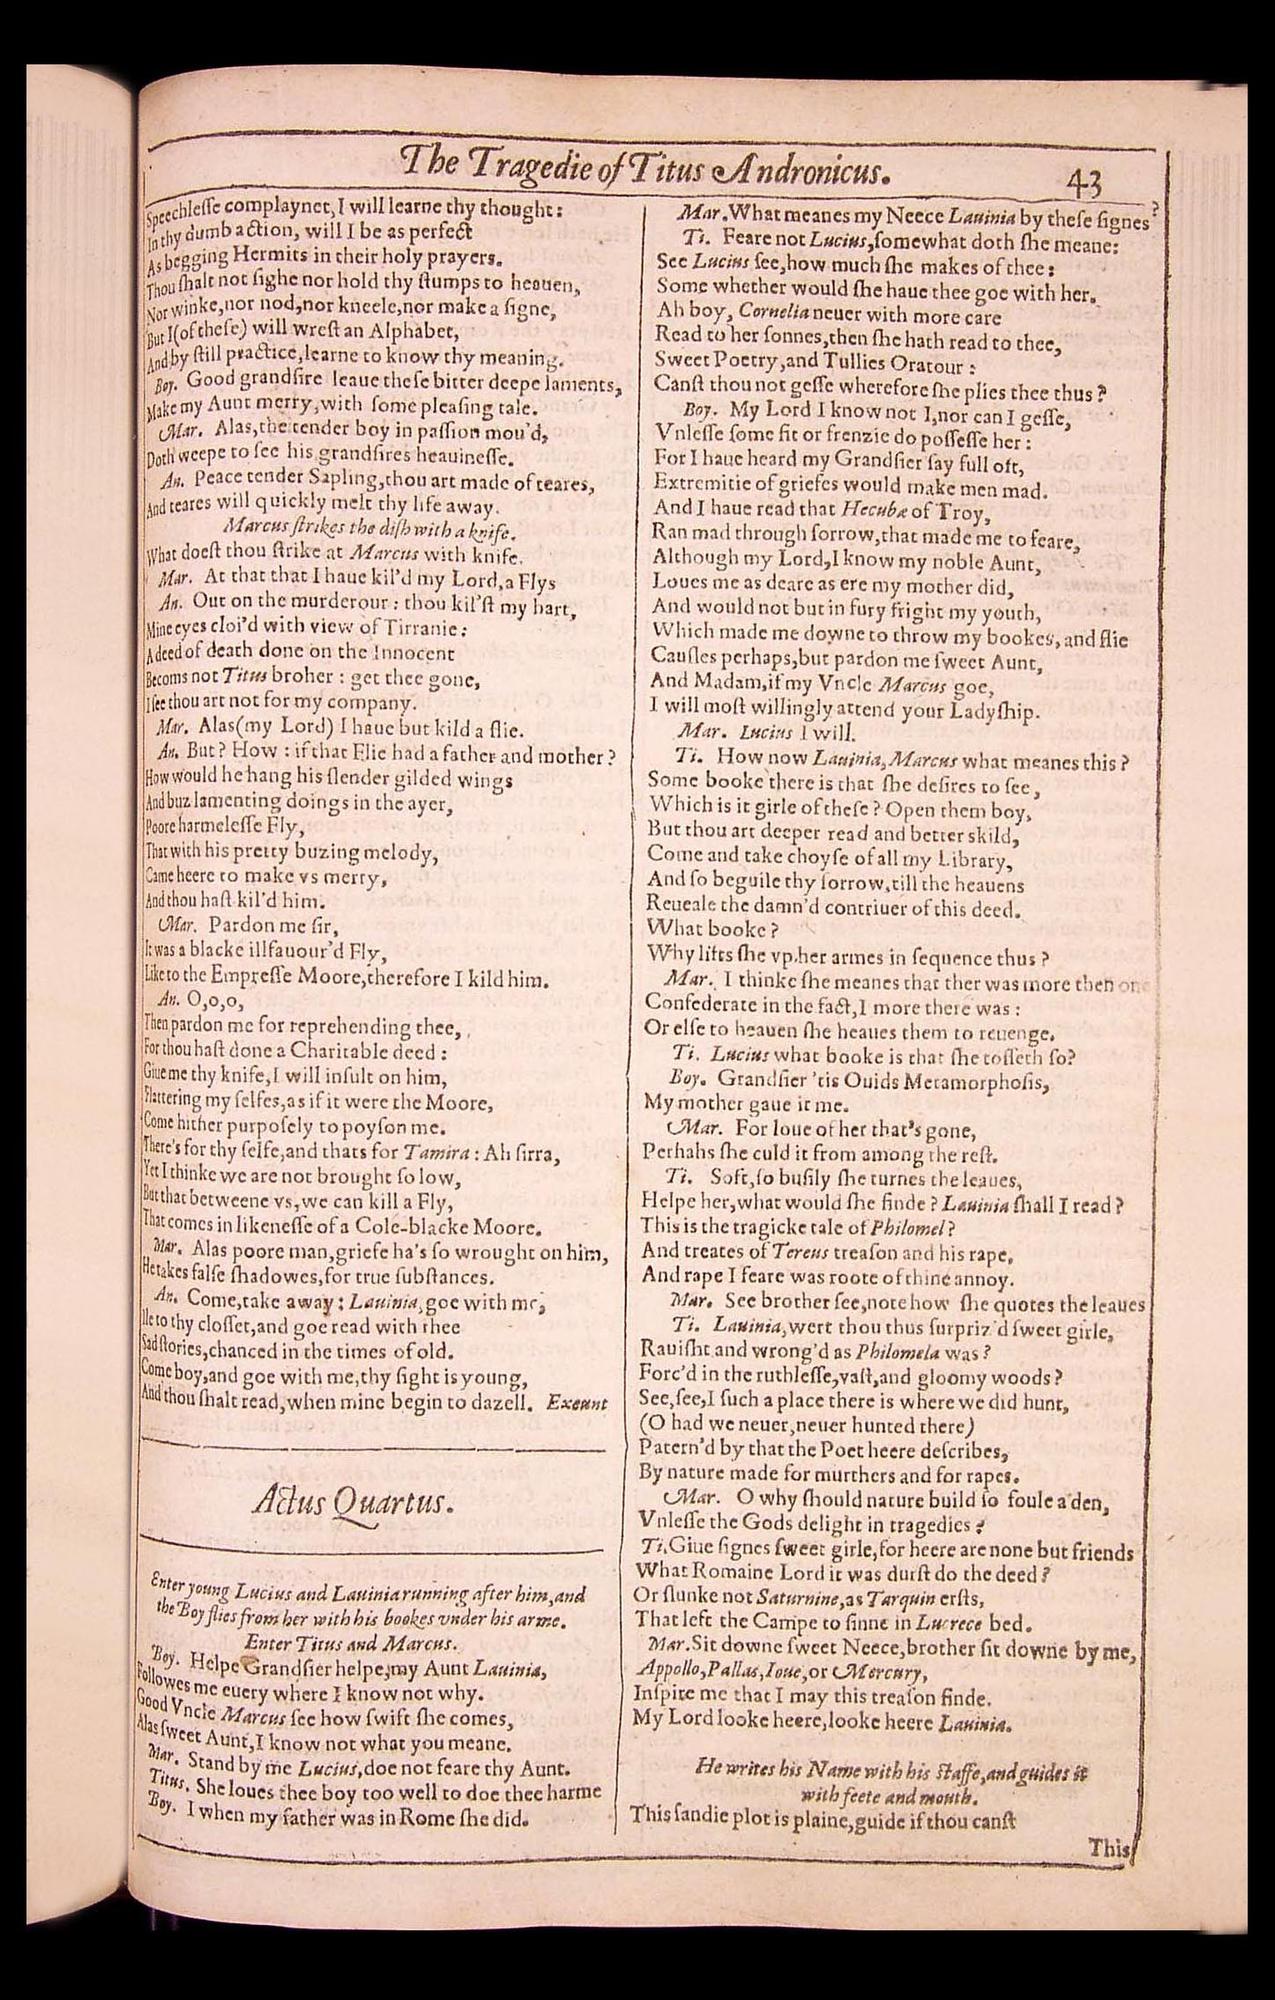 The Tragedie of Titus Andronicus. 43
Speechlesse complaynet, I will learne thy thought:
In thy dumb action, will I be as perfect
As begging Hermits in their holy prayers.
Thou ſhalt not ſighe nor hold thy ſtumps to heauen,
Nor winke, nor nod, nor kneele, nor make a ſigne,
But I (of theſe) will wreſt an Alphabet,
And by ſtill practice, learne to know thy meaning.
Boy. Good grandſire leaue theſe bitter deepe laments,
Make my Aunt merry, with ſome pleaſing tale.
Mar. Alas, the tender boy in paſſion mou'd,
Doth weepe to ſee his grandſires heauineſſe.
An. Peace tender Sapling, thou art made of teares,
And teares will quickly melt thy life away.
Marcus ſtrikes the diſh with a knife.
What doeſt thou ſtrike at Marcus with knife.
Mar. At that that I haue kil'd my Lord, a Flys
An. Out on the murderour: thou kil'ſt my hart,
Mine eyes cloi'd with view of Tirranie:
A deed of death done on the Innocent
Becoms not Titus broher: get thee gone,
I ſee thou art not for my company.
Mar. Alas (my Lord) I haue but kild a flie.
An. But? How: if that Flie had a father and mother?
How would he hang his ſlender gilded wings
And buz lamenting doings in the ayer,
Poore harmeleſſe Fly,
That with his pretty buzing melody,
Came heere to make vs merry,
And thou haſt kil'd him.
Mar. Pardon me ſir,
It was a blacke illfauour'd Fly,
Like to the Empreſſe Moore, therefore I kild him.
An. O, o, o,
Then pardon me for reprehending thee,
For thou haſt done a Charitable deed:
Giue me thy knife, I will inſult on him,
Flattering my ſelfes, as if it were the Moore,
Come hither purpoſely to poyſon me.
There's for thy ſelfe, and thats for Tamira: Ah ſirra,
Yet I thinke we are not brought ſo low,
But that betweene vs, we can kill a Fly,
That comes in likeneſſe of a Cole-blacke Moore.
Mar. Alas poore man, griefe ha's ſo wrought on him,
He takes falſe ſhadowes, for true ſubſtances.
An. Come, take away: Lauinia, goe with me,
Ile to thy cloſſet, and goe read with thee
Sad ſtories, chanced in the times of old.
Come boy, and goe with me, thy ſight is young,
And thou ſhalt read, when mine begin to dazell. Exeunt
Actus Quartus.
Enter young Lucius and Lauinia running after him, and
the Boy flies from her with his bookes vnder his arme.
Enter Titus and Marcus.
Boy. Helpe Grandſier helpe, my Aunt Lauinia,
Followes me euery where I know not why.
Good Vncle Marcus ſee how ſwift ſhe comes,
Alas ſweet Aunt, I know not what you meane.
Mar. Stand by me Lucius, doe not feare thy Aunt.
Titus. She loues thee boy too well to doe thee harme
Boy. I when my father was in Rome ſhe did.
Mar. What meanes my Neece Lauinia by theſe ſignes?
Ti. Feare not Lucius, ſomewhat doth ſhe meane:
See Lucius ſee, how much ſhe makes of thee:
Some whether would ſhe haue thee goe with her.
Ah boy, Cornelia neuer with more care
Read to her ſonnes, then ſhe hath read to thee,
Sweet Poetry, and Tullies Oratour:
Canſt thou not geſſe wherefore ſhe plies thee thus?
Boy. My Lord I know not I, nor can I geſſe,
Vnleſſe ſome fit or frenzie do poſſeſſe her:
For I haue heard my Grandſier ſay full oft,
Extremitie of griefes would make men mad.
And I haue read that Hecubæ of Troy,
Ran mad through ſorrow, that made me to feare,
Although my Lord, I know my noble Aunt,
Loues me as deare as ere my mother did,
And would not but in fury fright my youth,
Which made me downe to throw my bookes, and flie
Cauſles perhaps, but pardon me ſweet Aunt,
And Madam, if my Vncle Marcus goe,
I will moſt willingly attend your Ladyſhip.
Mar. Lucius I will.
Ti. How now Lauinia, Marcus what meanes this?
Some booke there is that ſhe deſires to ſee,
Which is it girle of theſe? Open them boy,
But thou art deeper read and better skild,
Come and take choyſe of all my Library,
And ſo beguile thy ſorrow, till the heauens
Reueale the damn'd contriuer of this deed.
What booke?
Why lifts ſhe vp her armes in ſequence thus?
Mar. I thinke ſhe meanes that ther was more then one
Confederate in the fact, I more there was:
Or elſe to heauen ſhe heaues them to reuenge.
Ti. Lucius what booke is that ſhe toſſeth ſo?
Boy. Grandſier 'tis Ouids Metamorphoſis,
My mother gaue it me.
Mar. For loue of her that's gone,
Perhahs ſhe culd it from among the reſt.
Ti. Soft, ſo buſily ſhe turnes the leaues,
Helpe her, what would ſhe finde? Lauinia ſhall I read?
This is the tragicke tale of Philomel?
And treates of Tereus treaſon and his rape,
And rape I feare was roote of thine annoy.
Mar. See brother ſee, note how ſhe quotes the leaues
Ti. Lauinia, wert thou thus ſurpriz'd ſweet girle,
Rauiſht and wrong'd as Philomela was?
Forc'd in the ruthleſſe, vaſt, and gloomy woods?
See, ſee, I ſuch a place there is where we did hunt,
(O had we neuer, neuer hunted there)
Patern'd by that the Poet heere deſcribes,
By nature made for murthers and for rapes.
Mar. O why ſhould nature build ſo foule a den,
Vnleſſe the Gods delight in tragedies?
Ti. Giue ſignes ſweet girle, for heere are none but friends
What Romaine Lord it was durſt do the deed?
Or ſlunke not Saturnine, as Tarquin erſts,
That left the Campe to ſinne in Lucrece bed.
Mar. Sit downe ſweet Neece, brother ſit downe by me,
Appollo, Pallas, Ioue, or Mercury,
Inſpire me that I may this treaſon finde.
My Lord looke heere, looke heere Lauinia.
He writes his Name with his ſtaffe, and guides it
with feete and mouth.
This ſandie plot is plaine, guide if thou canſt
This